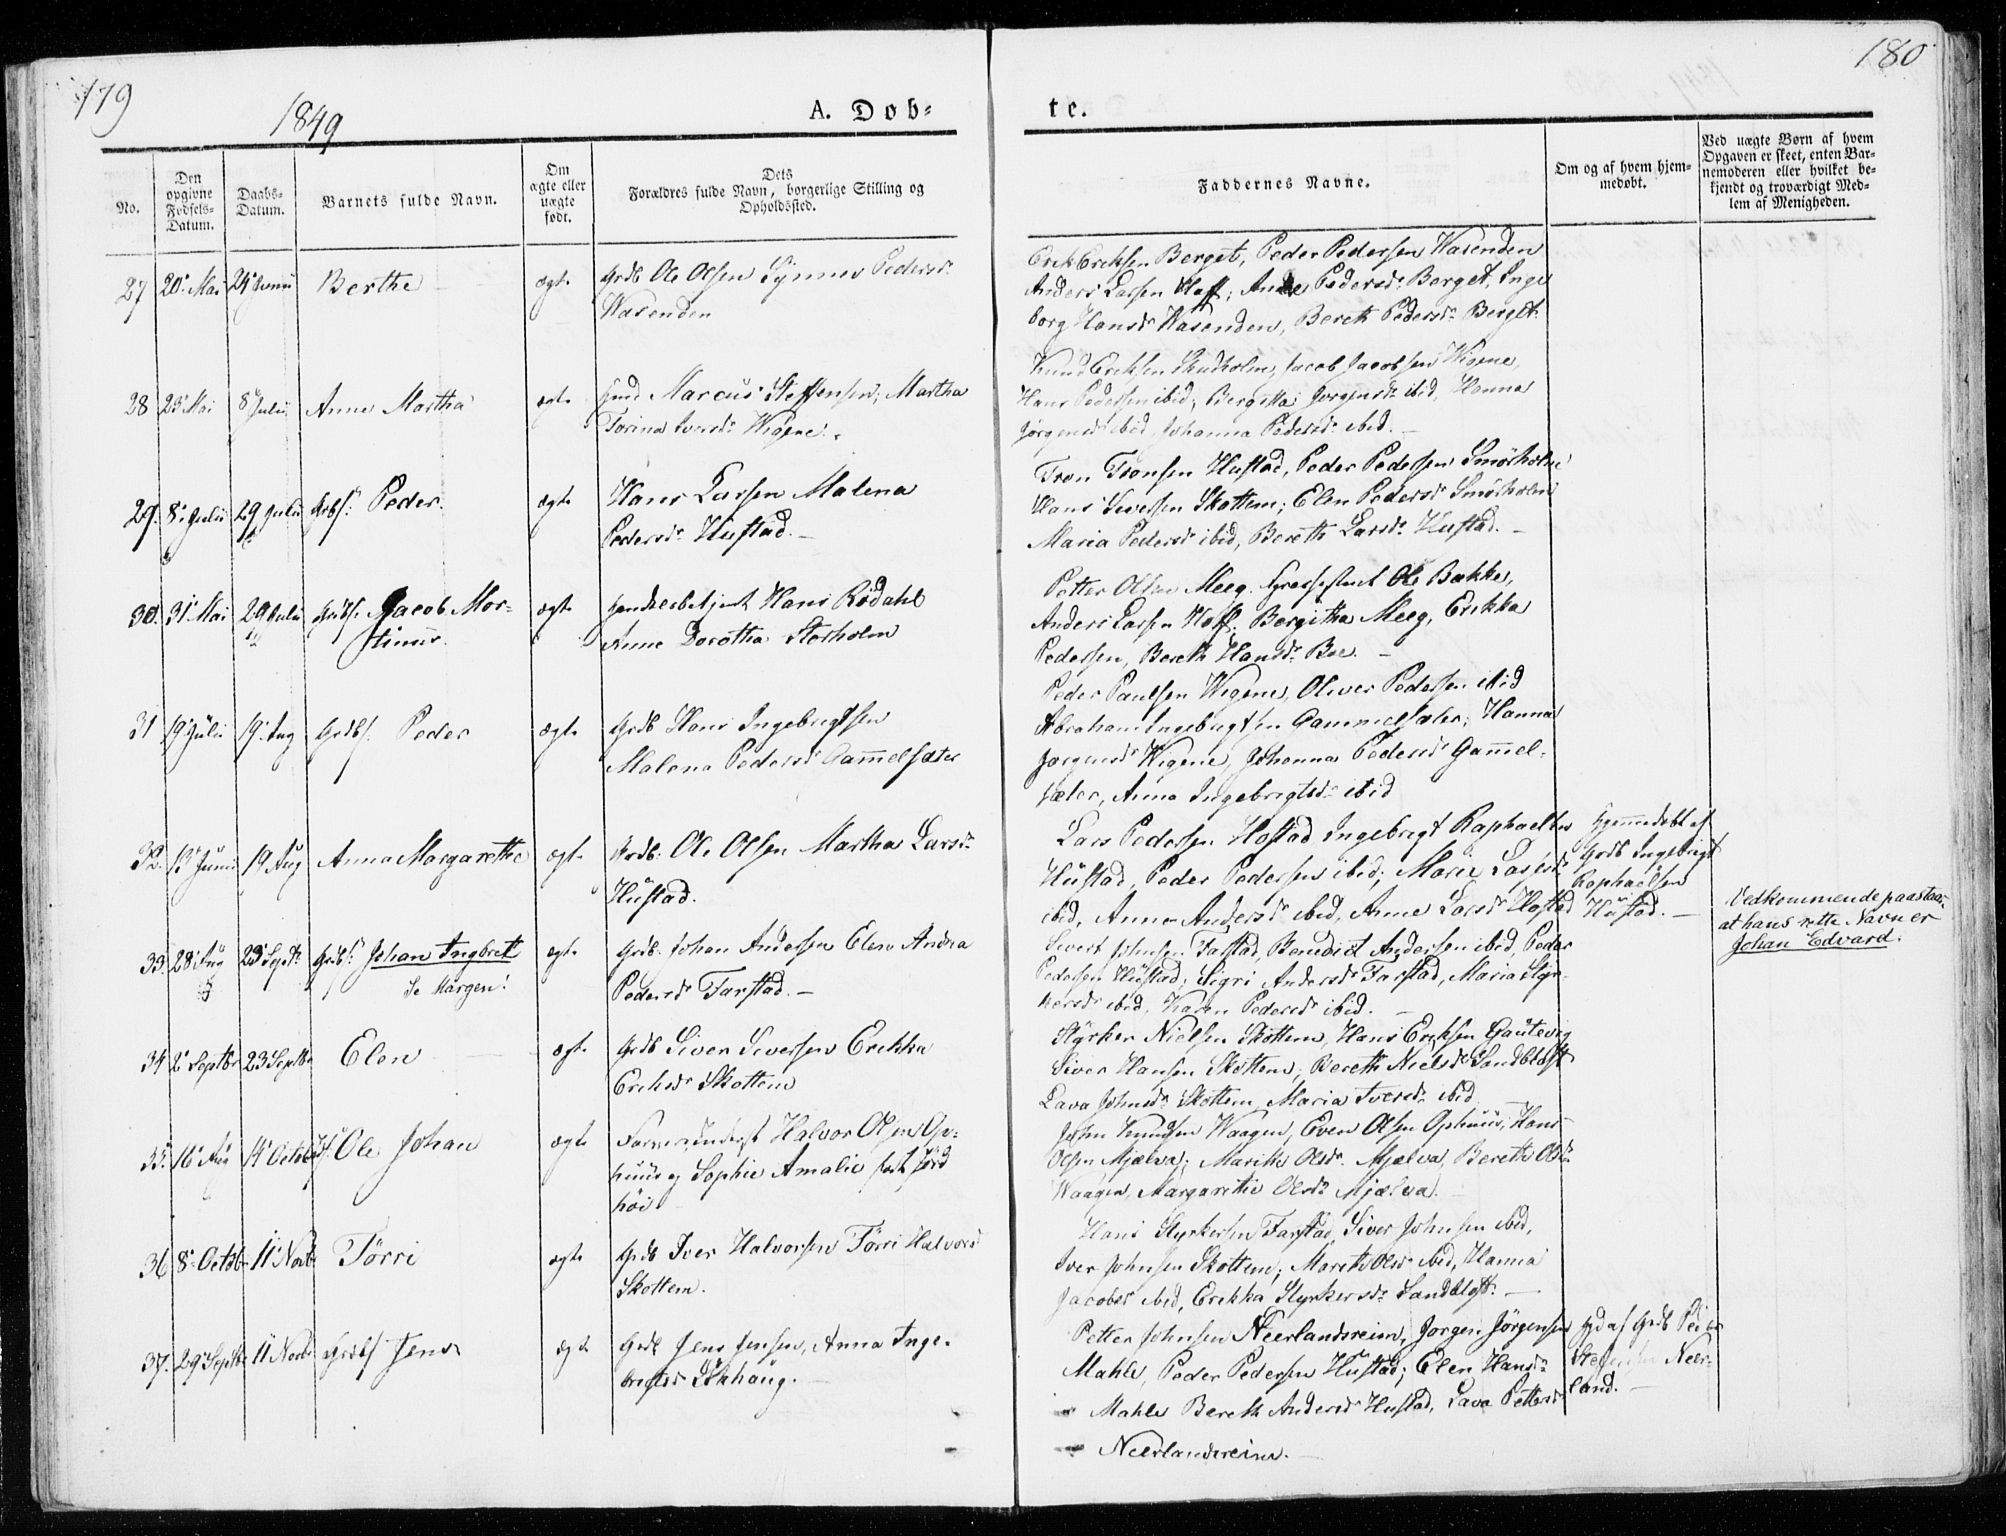 179
180
1849
A. Døb-
te.
No.
Den opgivne Fødsels-Datum.
Daabs-Datum.
Barnets fulde Navn.
Om ægte eller uægte født.
Dets Forældres fulde Navn, borgerlige Stilling og Opholdssted.
Faddernes Navne.
Om og af hvem hjemmedøbt.
Ved uægte Børn af hvem Opgaven er skeet, enten Barnemoderen eller hvilket bekjendt og troværdigt Medlem af Menigheden.
27 20 Mai 24 Juni Berthe ægte Grdb Ole Olsen Synnev Pedersd.
Wasenden
Erik Eriksen Berget, Peder Pedersen Wasenden
Anders Larsen Hoff; Anne Pedersd. Berget, Inge
borg Hansd. Wasenden, Bereth Pedersd. Berget
28 23 Mai 8 Julii Anne Martha ægte Marcus Steffensen, Martha
Torina Iversd. Wigene.
Knud Eriksen Skudholm, Jacob Jacobsen Wigene,
Hans Pedersen ibid; Bergitta Jørgensd. ibid, Hanna
Jørgensd. ibid, Johanna Pedersd. ibid.
29. 8 Julii 29 Julii Grbs. Peder. ægte Hans Larsen Malena
Pedersd. Hustad.
Tron Tronsen Hustad, Peder Pedersen Smörholm
Hans Siversen Skottem; Elen Pedersd. Smörholm
Maria Pedersd. ibid, Bereth Larsd. Hustad.
30. 31 Mai 29 Julii Jacob Mor-
tinus. ægte Hans Rødahl
Anne Dorothea Storholm
Petter Olsen Meeg. Ole Bakke,
Anders Larsen Hoff; Bergitha Meeg, Erikka
Pedersen, Bereth Hansd. Boe.
31 19 Juli 19 Aug Grdbs. Peder ægte Grdb Hans Ingebrigtsen
Malena Pedersd. Gammelsæter
Peder Paulsen Wigene, Oliver Pedersen ibid
Abraham Ingebrigtsen Gammelsæter; Hanna
Jørgensd. Wigene, Johanna Pedersd. Gammel-
sæter, Anna Ingebrigtsd. ibid
32. 13 Juni 19 Aug Anna Margarethe ægte Grdb. Ole Olsen Martha Larsd.
Hustad.
Lars Pedersen Hostad Ingebrigt Raphaelsen
Hustad, Peder Pedersen ibid; Marie Larsd.
ibid, Anne Andersd. ibid, Anne Larsd. Hostad
Hjemmedøbt af
Grdb Ingebrigt
Raphaelsen
Hustad.
33. 28 Aug 23 Sept. Grdbs. Johan Ingbret
Se Margen! ægte Grdb. Johan Andersen Elen Andrea
Pedersd. Farstad.
Sivert Johnsen Farstad, Benedict Andersen ibid, Peder
Pedersen Hustad; Sigri Andersd. Farstad, Maria Styr-
kersd. ibid, Karen Pedersd. ibid.
Vedkommende paastaar,
at hans rette Navn er
Johan Edvard.
34 2 Septbr 23 Septbr Elen ægte Grdb Siver Siversen Erikka
Eriksd. Skottem
Styrker Nielsen Skottem, Hans Eriksen Gautevig
Siver Hansen Skottem; Bereth Nielsd. Sandblost
Lava Johnsd. Skottem, Maria Iversd. ibid
35. 16 Aug 14 Octob Ole Johan ægte Halvor Olsen Op-
huus og Sophie Amalie
höi
John Knudsen Waagen, Even Olsen Ophuus, Hans
Olsen Mjælva; Marith Olsd. Mjælva, Bereth Olsd.
Waagen, Margarethe Olsd. Mjælva.
36 8 Octbr 11 Novb. Tørri ægte Grdb Iver Halvorsen Tørri Halvorsd
Skottem.
Hans Styrkersen Farstad, Siver Johnsen ibid,
Iver Johnsen Skottem; Marith Olsd. ibid, Hanna
Jacobsd ibid, Erikka Styrkersd. Sandblost.
37. 29 Septbr 11 Novbr Grdbs Jens ægte Grdb Jens Jensen, Anna Inge-
brigtsd.
Petter Johnsen Neerlandsreim, Jørgen Jörgensen
Mahle, Peder Pedersen Hustad; Elen Hansd.
Mahle Bereth Andersd Hustad, Lava Pettersd
Neerlandsreim.
Hjd af Grdb Peder
Steffensen Neer-
land.